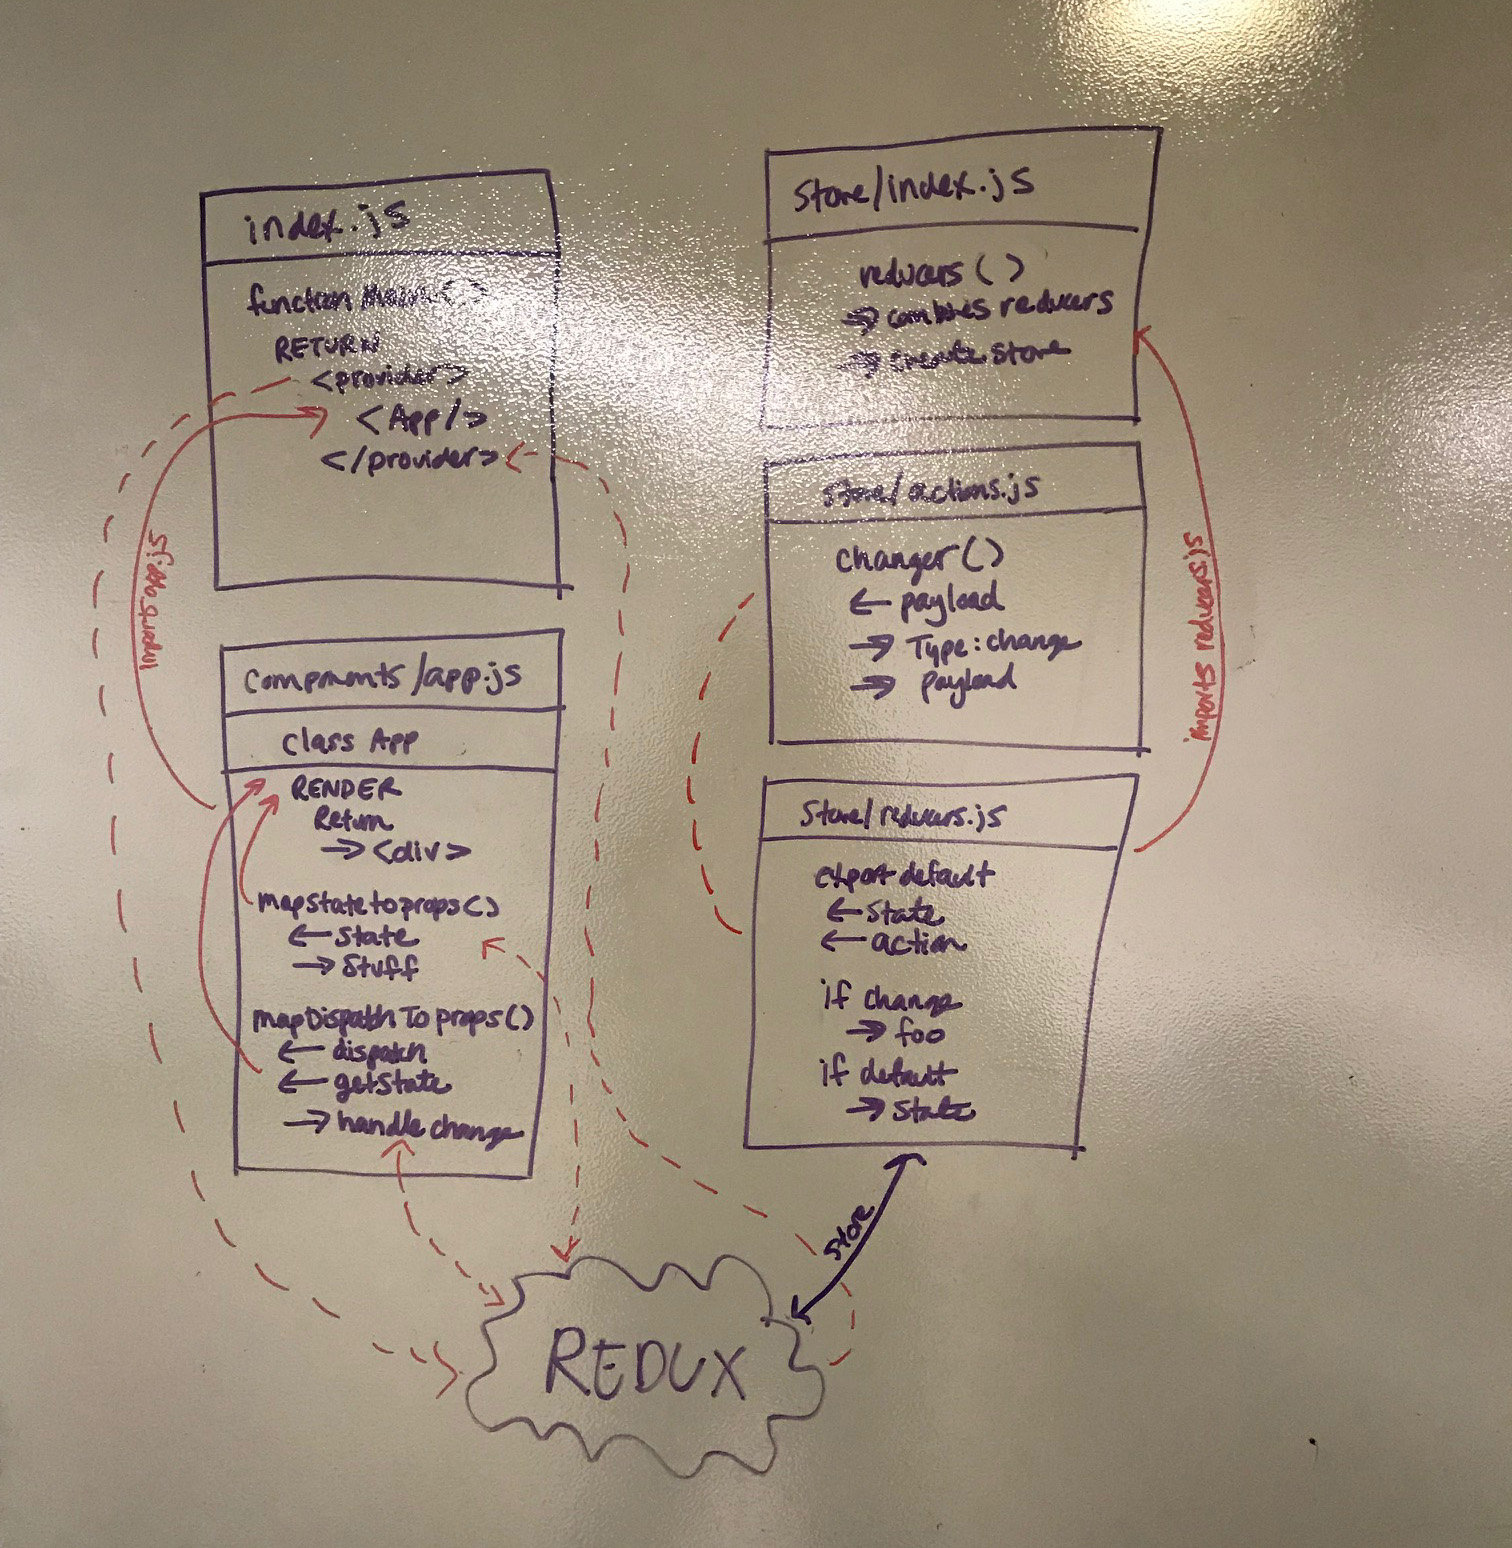 index.js
function Main()
RETURN
<provider>
<App/>
</provider>
imports app.js
components/app.js
class App
RENDER
Return
→ <div>
mapstatetoprops()
← state
→ stuff
mapDispatchToprops()
← dispatch
← getstate
→ handle change
store/index.js
reducers()
→ combines reducers
→ create store
store/actions.js
changer()
← payload
→ Type: change
→ payload
store/reducers.js
export default
← state
← action
if change
→ foo
if default
→ state
imports reducers.js
store
REDUX